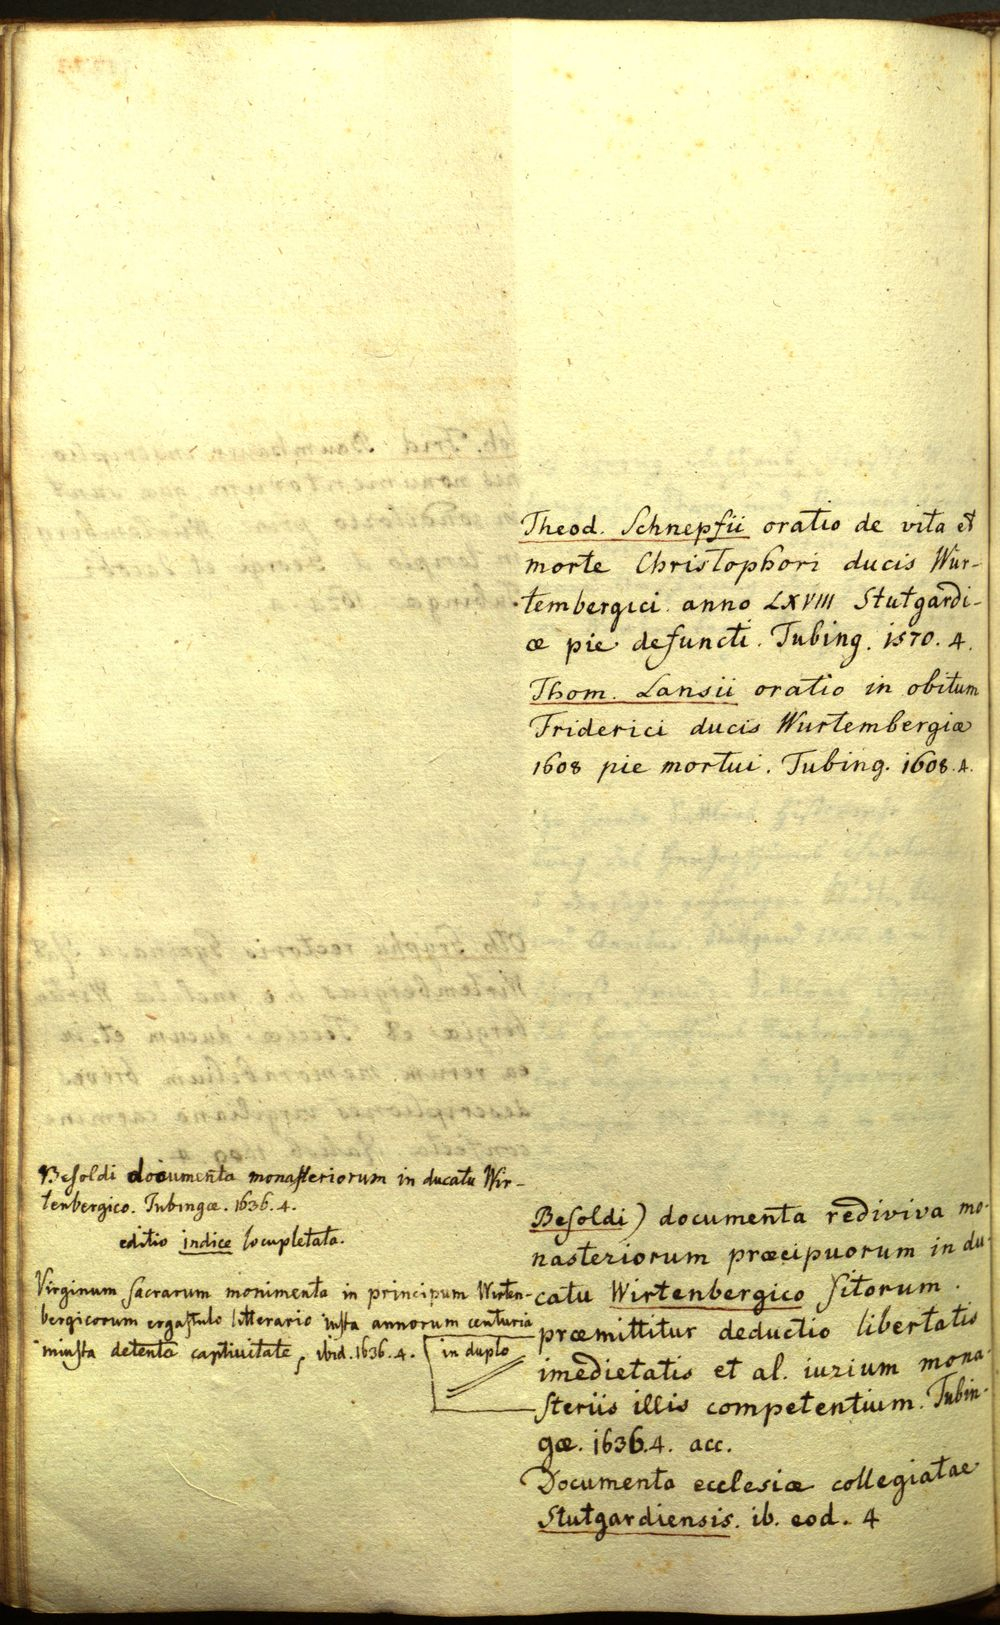 Theod. Schnepfii oratio de vita et
morte Christophori ducis Wür-
tembergici anno LXVIII Stutgardi-
æ pie defuncti. Tubing. 1570. 4.
Thom. Lansii oratio in obitum
Friderici ducis Wurtembergiæ
1608 pie mortui. Tubing. 1608. 4.
Besoldi documenta monasteriorum in ducatu Wir-
tenbergico. Tubingæ. 1636. 4.
editio indice locupletata.
Virginum sacrarum monimenta in principum Wirten-
bergicorum ergastulo litterario iusta annorum centuria
iniusta detenta captivitate, ibid. 1636. 4. in duplo
Besoldi) documenta rediviva mo-
nasteriorum præcipuorum in du-
catu Wirtenbergico sitorum.
præmittitur deductio libertatis
imedietatis et al. iurium mona-
steriis illis competentium. Tubin-
gæ. 1636. 4. acc.
Documenta ecclesiæ collegiatae
Stutgardiensis. ib. eod. 4